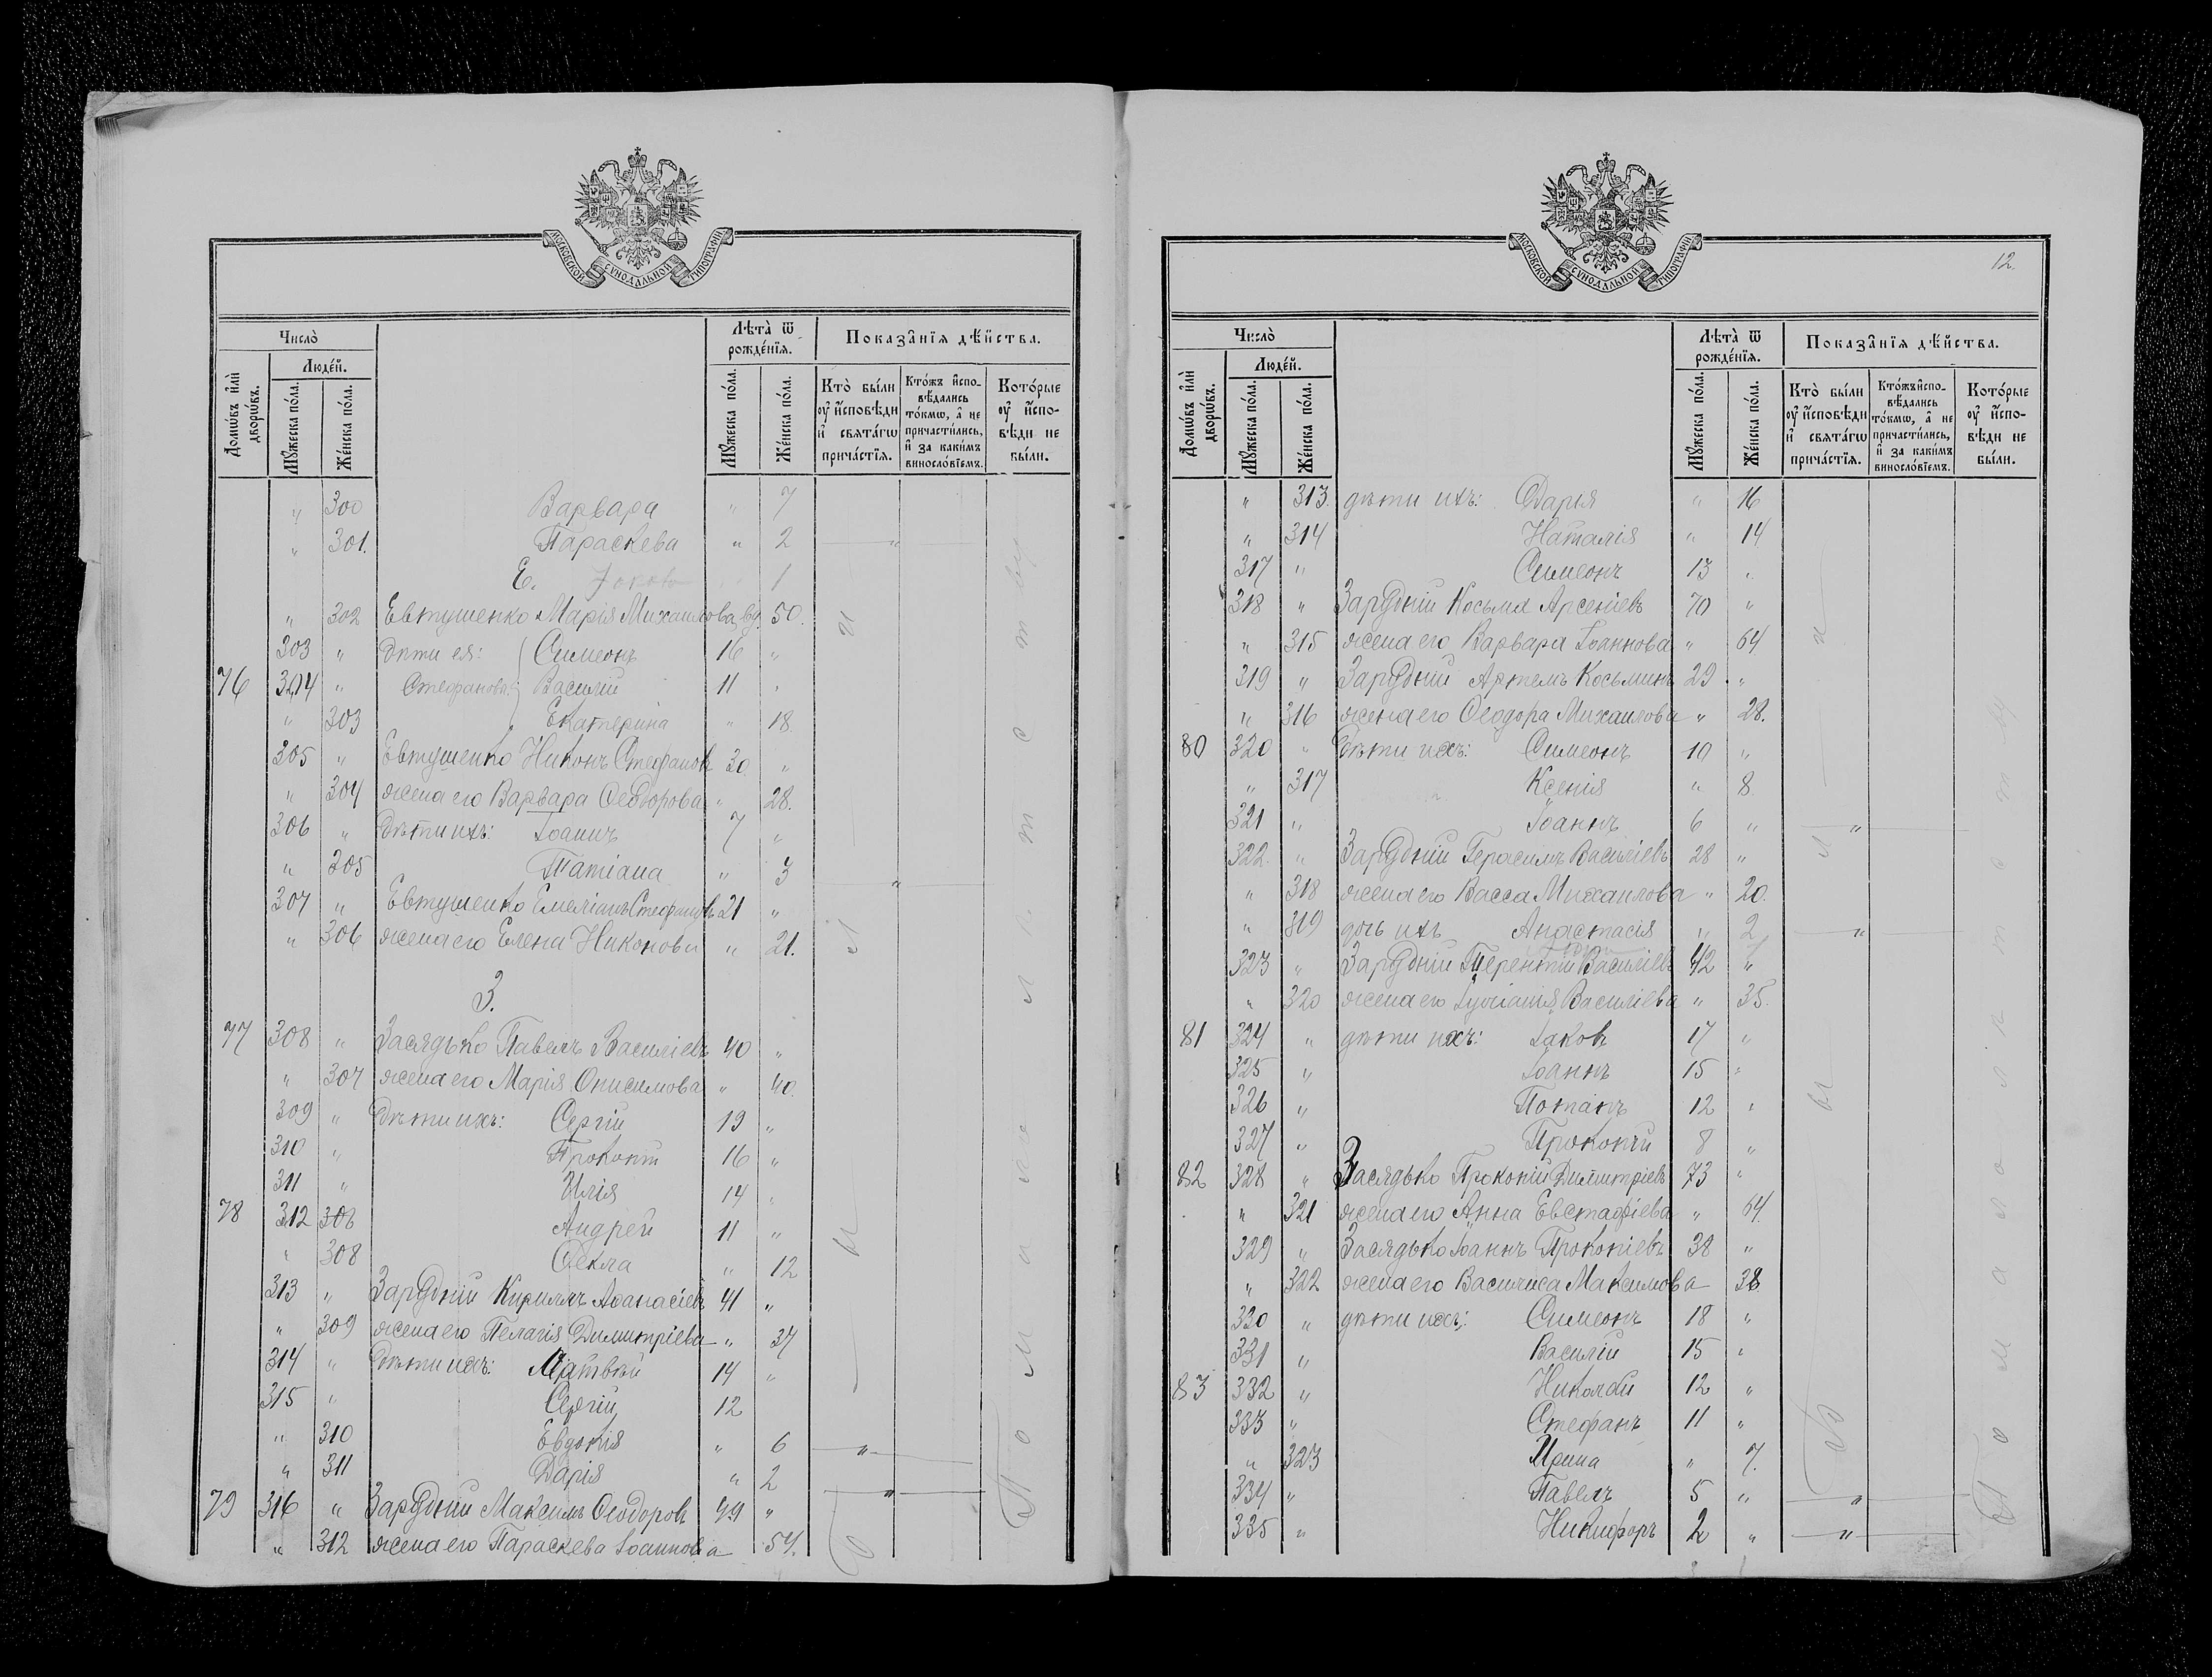 МОСКОВСКОЙ СѴНОДАЛЬНОЙ ТИПОГРАФІИ
Число̀
Лѣта̀ ѿ рожде́нїѧ.
Показа̑нїѧ дѣ́йства.
Домѡ́въ и҆лѝ дворѡ́въ.
Люде́й.
Мꙋ́жеска по́ла.
Же́нска по́ла.
Мꙋ́жеска по́ла.
Же́нска по́ла.
Кто̀ бы́ли оу҆ и҆́сповѣди и҆ свѧта́гѡ прича́стїѧ.
Кто́жъ и҆спо-вѣдались то́кмѡ, а҆ не причасти́лись, и҆ за каки́мъ винослові́емъ.
Кото́рые оу҆ и҆́спо-вѣди не бы́ли.
" 300 Варвара " 7
" 301. Параскева " 2 "
Е. Іаковъ 1
" 302 Евтушенко Марія Михаилова, вд. 50.
303 " Дѣти ея: Симеонъ 16 "
76 304 " Стефановы Василій 11 "
" 303 Екатерина " 18.
305 " Евтушенко Никонъ Стефановъ 30 "
" 304 жена его Варвара Ѳеодорова " 28.
306 " Дѣти ихъ: Іоаннъ 7 "
" 305 Татіана " 3 "
307 " Евтушенко Емеліанъ Стефановъ 21 "
" 306 жена его Елена Никонова " 21.
З.
77 308 " Засядько Павелъ Василіевъ 40 "
" 307 жена его Марія Онисимова " 40.
309 " Дѣти ихъ: Сергій 19 "
310 " Прокопій 16 "
311 " Илія 14 "
78 312 308 Андрей 11 "
" 308 Ѳекла " 12
313 " Зарудній Кириллъ Аѳанасіевъ 41 "
" 309 жена его Пелагія Димитріева " 37
314 " Дѣти ихъ: Матвѣй 14 "
315 " Сергій 12
" 310 Евдокія " 6 "
" 311 Дарія " 2 "
79 316 " Зарудній Максимъ Ѳеодоровъ 49 "
" 312 жена его Параскева Іоаннова 54.
12.
МОСКОВСКОЙ СѴНОДАЛЬНОЙ ТИПОГРАФІИ
Число̀
Лѣта̀ ѿ рожде́нїѧ.
Показа̑нїѧ дѣ́йства.
Домѡ́въ и҆лѝ дворѡ́въ.
Люде́й.
Мꙋ́жеска по́ла.
Же́нска по́ла.
Мꙋ́жеска по́ла.
Же́нска по́ла.
Кто̀ бы́ли оу҆ и҆́сповѣди и҆ свѧта́гѡ прича́стїѧ.
Кто́жъ и҆спо-вѣдались то́кмѡ, а҆ не причасти́лись, и҆ за каки́мъ винослові́емъ.
Кото́рые оу҆ и҆́спо-вѣди не бы́ли.
" 313. дѣти ихъ: Дарія " 16
" 314 Наталія " 14
317 " Симеонъ 13 "
318 " Зарудній Косьма Арсеніевъ 70 "
" 315 жена его Варвара Іоаннова " 64
319 " Зарудній Артемъ Косьминъ 29 "
" 316 жена его Ѳеодора Михаилова " 28.
80 320 " Дѣти ихъ: Симеонъ 10 "
" 317 Ксенія " 8
321 " Іоаннъ 6 " "
322. " Зарудній Герасимъ Василіевъ 28 "
" 318 жена его Васса Михаилова " 20.
" 319 дочь ихъ Анастасія " 2 "
323 " Зарудній Терентій Василіевъ 42 "
" 320 жена его Іуліанія Василіева " 35.
81 324 " дѣти ихъ: Іаковъ 17 "
325 " Іоаннъ 15 "
326 " Потапъ 12 "
327 " Прокопій 8 "
82 328 " Засядько Прокопій Димитріевъ 73 "
" 321 жена его Анна Евстафіева " 64.
329 " Засядько Іоаннъ Прокопіевъ 38 "
" 322 жена его Василиса Максимова 38.
330 " дѣти ихъ: Симеонъ 18 "
331 " Василій 15 "
83 332 " Николай 12 "
333 " Стефанъ 11 "
" 323 Ирина " 7.
334 " Павелъ 5 " "
335 " Никифоръ 2 " "